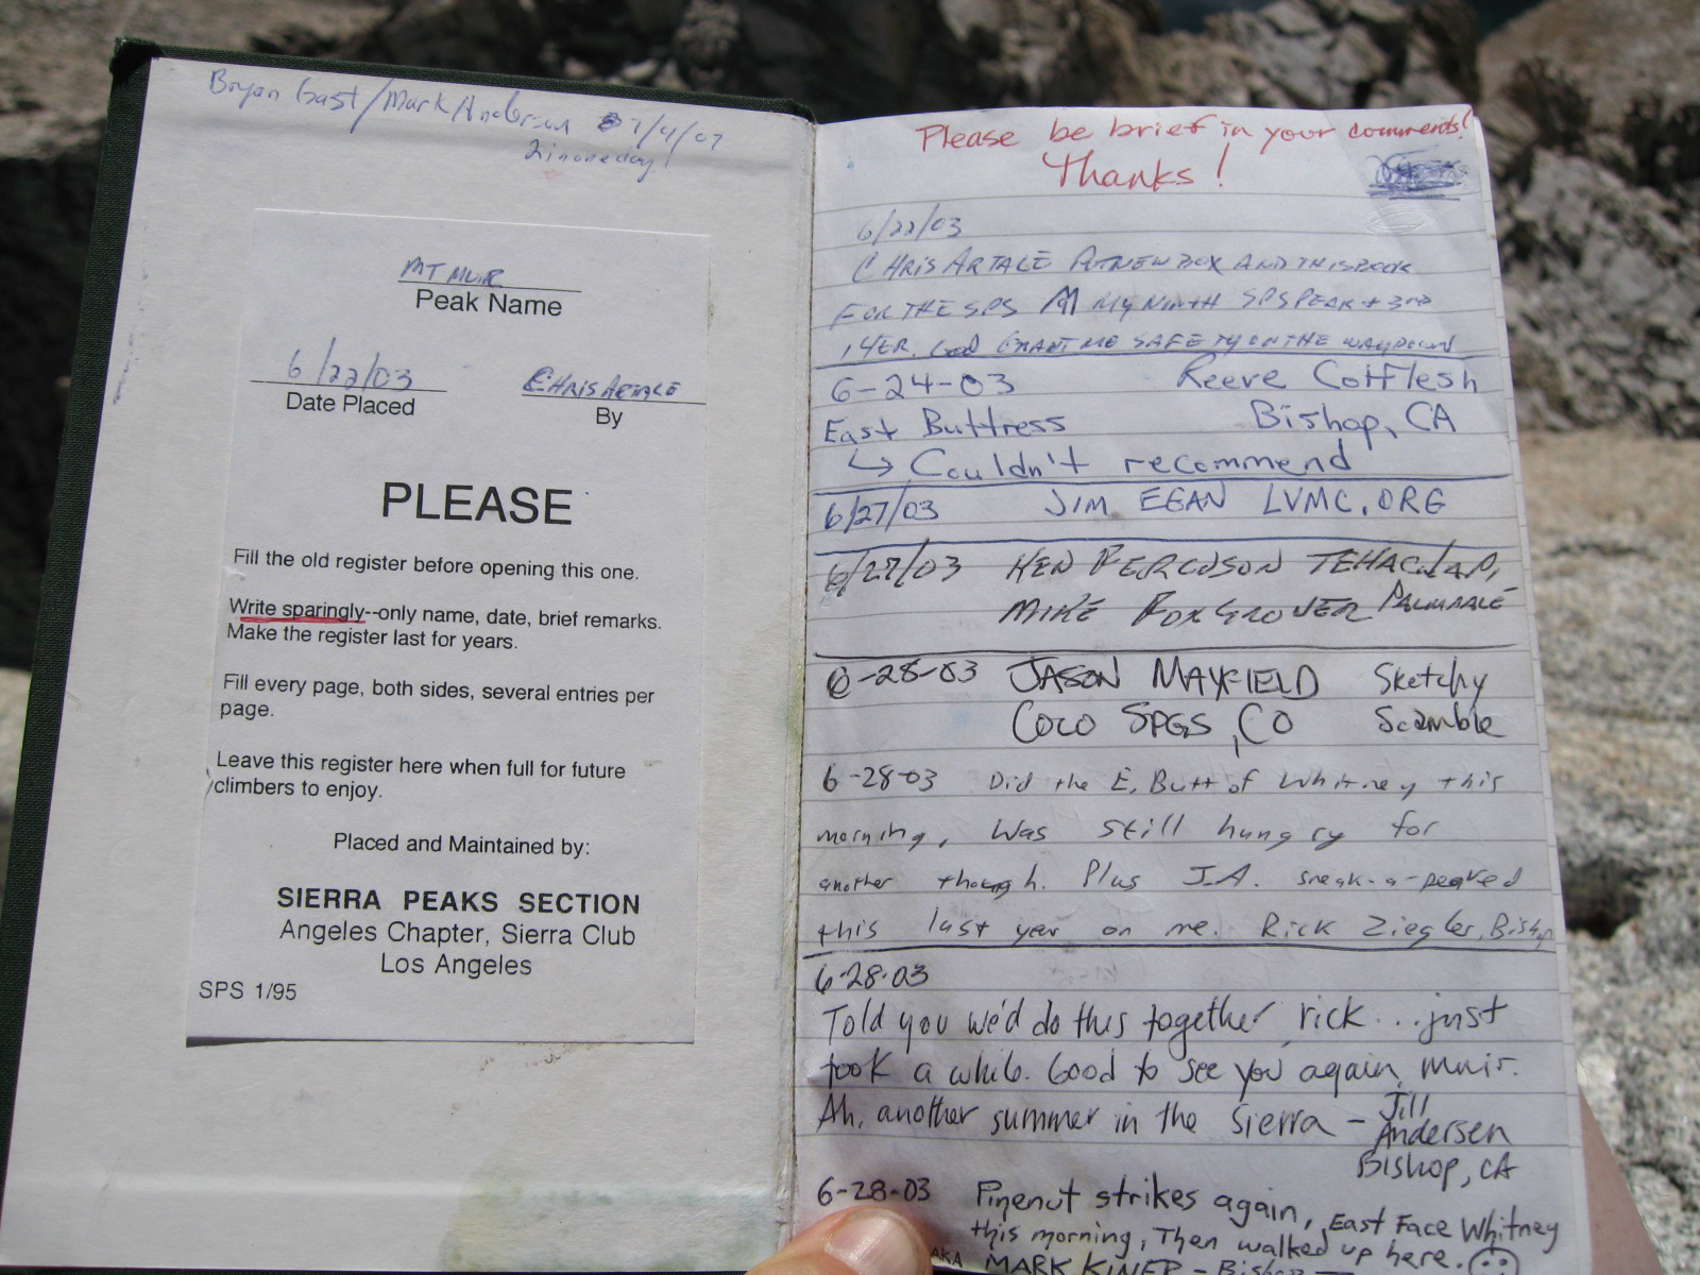 Bryan Gast/Mark Anderson 7/4/07
2 in one day!
MT MUIR
Peak Name
6/22/03
Date Placed
CHRIS ARTALE
By
PLEASE
Fill the old register before opening this one.
Write sparingly--only name, date, brief remarks.
Make the register last for years.
Fill every page, both sides, several entries per
page.
Leave this register here when full for future
climbers to enjoy.
Placed and Maintained by:
SIERRA PEAKS SECTION
Angeles Chapter, Sierra Club
Los Angeles
SPS 1/95
Please be brief in your comments!
Thanks!
6/22/03
CHRIS ARTALE PUT NEW BOX AND THIS BOOK
FOR THE SPS MY NINTH SPS PEAK + 3RD
14ER. God GRANT ME SAFETY ON THE WAY DOWN
6-24-03 Reeve Cofflesh
East Buttress Bishop, CA
↳ Couldn't recommend
6/27/03 JIM EGAN LVMC.ORG
6/27/03 KEN FERGUSON TEHACHAPI,
MIKE FOXGROVER PALMDALE
6-28-03 JASON MAYFIELD Sketchy
COLO SPGS, CO Scamble
6-28-03 Did the E. Butt of Whitney this
morning, Was still hungry for
another though. Plus J.A. sneak-a-peaked
this last year on me. Rick Ziegler, Bishop
6-28-03
Told you we'd do this together, rick...just
took a while. Good to see you again, muir.
Ah, another summer in the Sierra - Jill
Andersen
Bishop, CA
6-28-03 Pinenut strikes again, East Face Whitney
this morning, Then walked up here.
AKA MARK KINER - Bishop